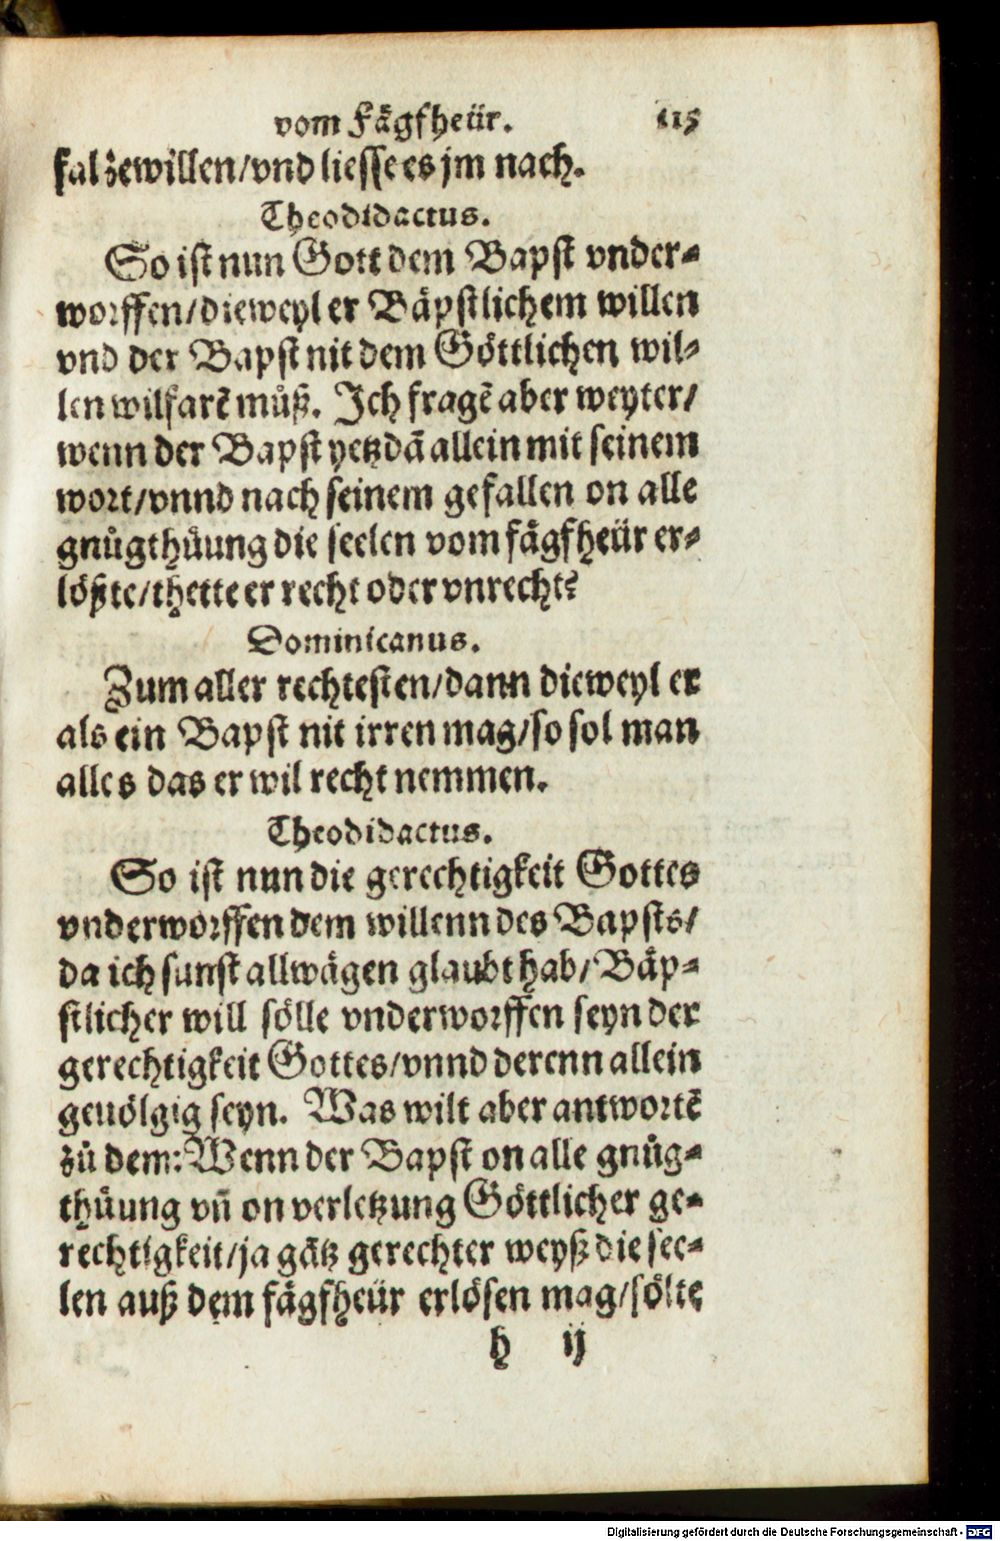 vom Fägfheür. 115
fal zewillen/vnd liesse es jm nach.
Theodidactus.
So ist nun Gott dem Bapst vnder-
worffen/dieweyl er Bäpstlichem willen
vnd der Bapst nit dem Göttlichen wil-
len wilfarē můß. Ich fragē aber weyter/
wenn der Bapst yetz dā allein mit seinem
wort/vnnd nach seinem gefallen on alle
gnůgthůung die seelen vom fägfheür er-
lößte/thette er recht oder vnrecht?
Dominicanus.
Zum aller rechtesten/dann dieweyl er
als ein Bapst nit irren mag/so sol man
alles das er wil recht nemmen.
Theodidactus.
So ist nun die gerechtigkeit Gottes
vnderworffen dem willenn des Bapsts/
da ich sunst allwägen glaubt hab/Bäp-
stlicher will sölle vnderworffen seyn der
gerechtigkeit Gottes/vnnd derenn allein
geuölgig seyn. Was wilt aber antwortē
zů dem: Wenn der Bapst on alle gnůg-
thůung vñ on verletzung Göttlicher ge-
rechtigkeit/ja gātz gerechter weyß die see-
len auß dem fägfheür erlösen mag/sölte
h ij
Digitalisierung gefördert durch die Deutsche Forschungsgemeinschaft - DFG